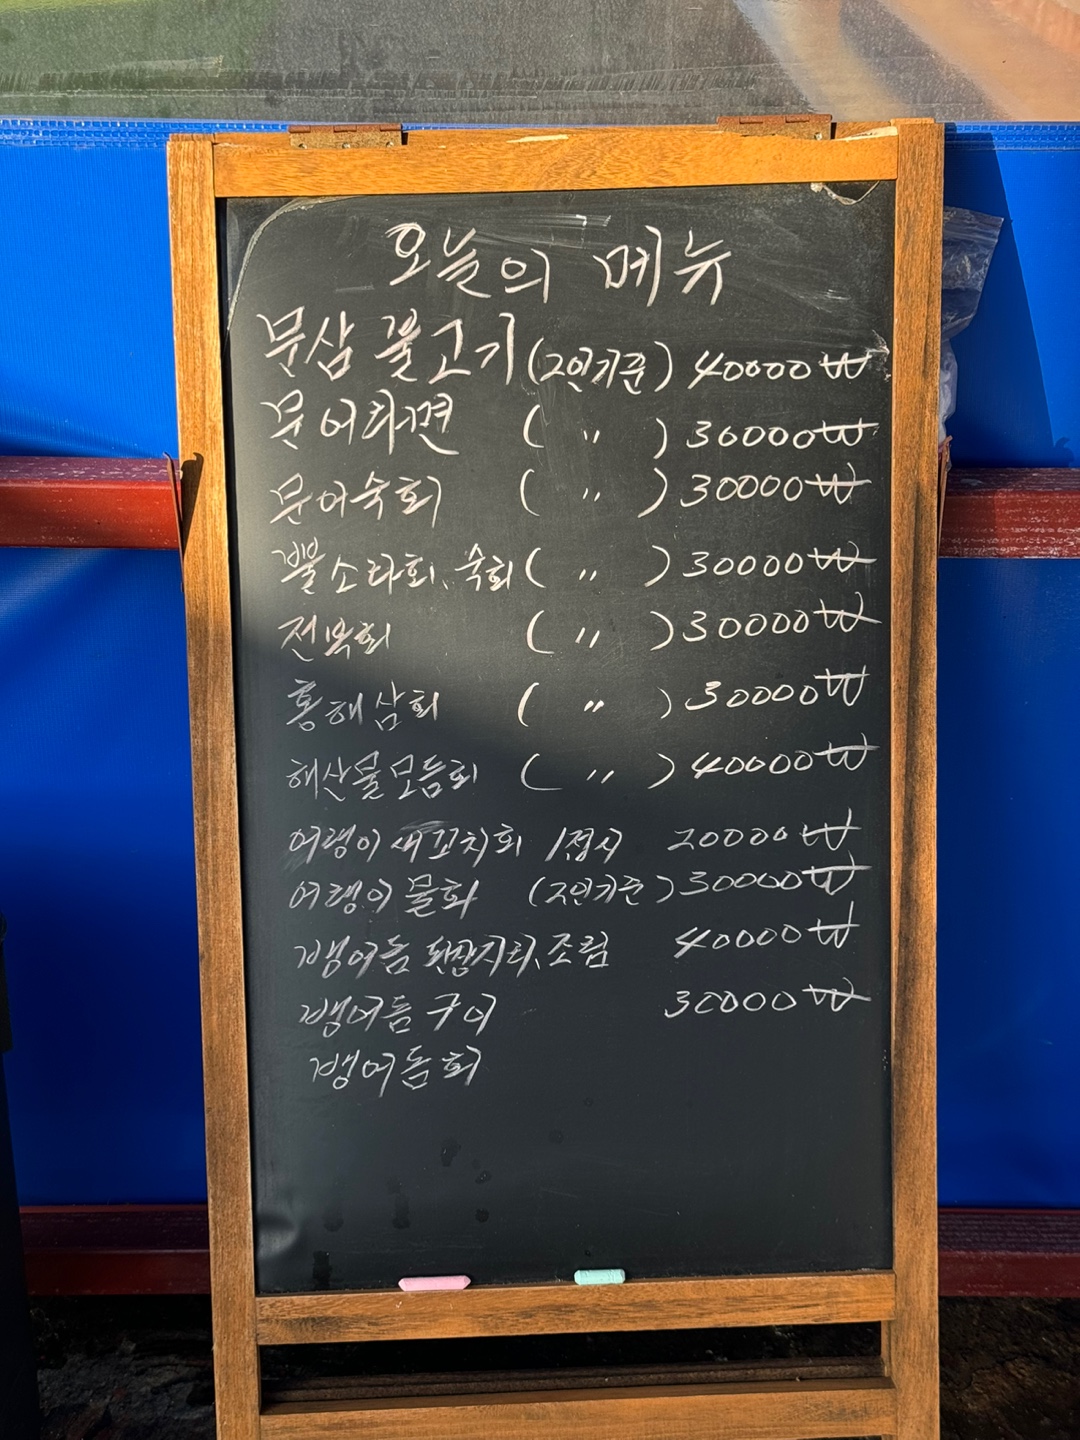 오늘의 메뉴
문삼 불고기 (2인기준) 40000₩
문어라면 ( 〃 ) 30000₩
문어숙회 ( 〃 ) 30000₩
뿔소라회, 숙회 ( 〃 ) 30000₩
전복회 ( 〃 ) 30000₩
홍해삼회 ( 〃 ) 30000₩
해산물모듬회 ( 〃 ) 40000₩
어랭이 새꼬치회 1접시 20000₩
어랭이 물회 (2인기준) 30000₩
뱅어돔 지리, 조림 40000₩
뱅어돔 구이 30000₩
뱅어돔회